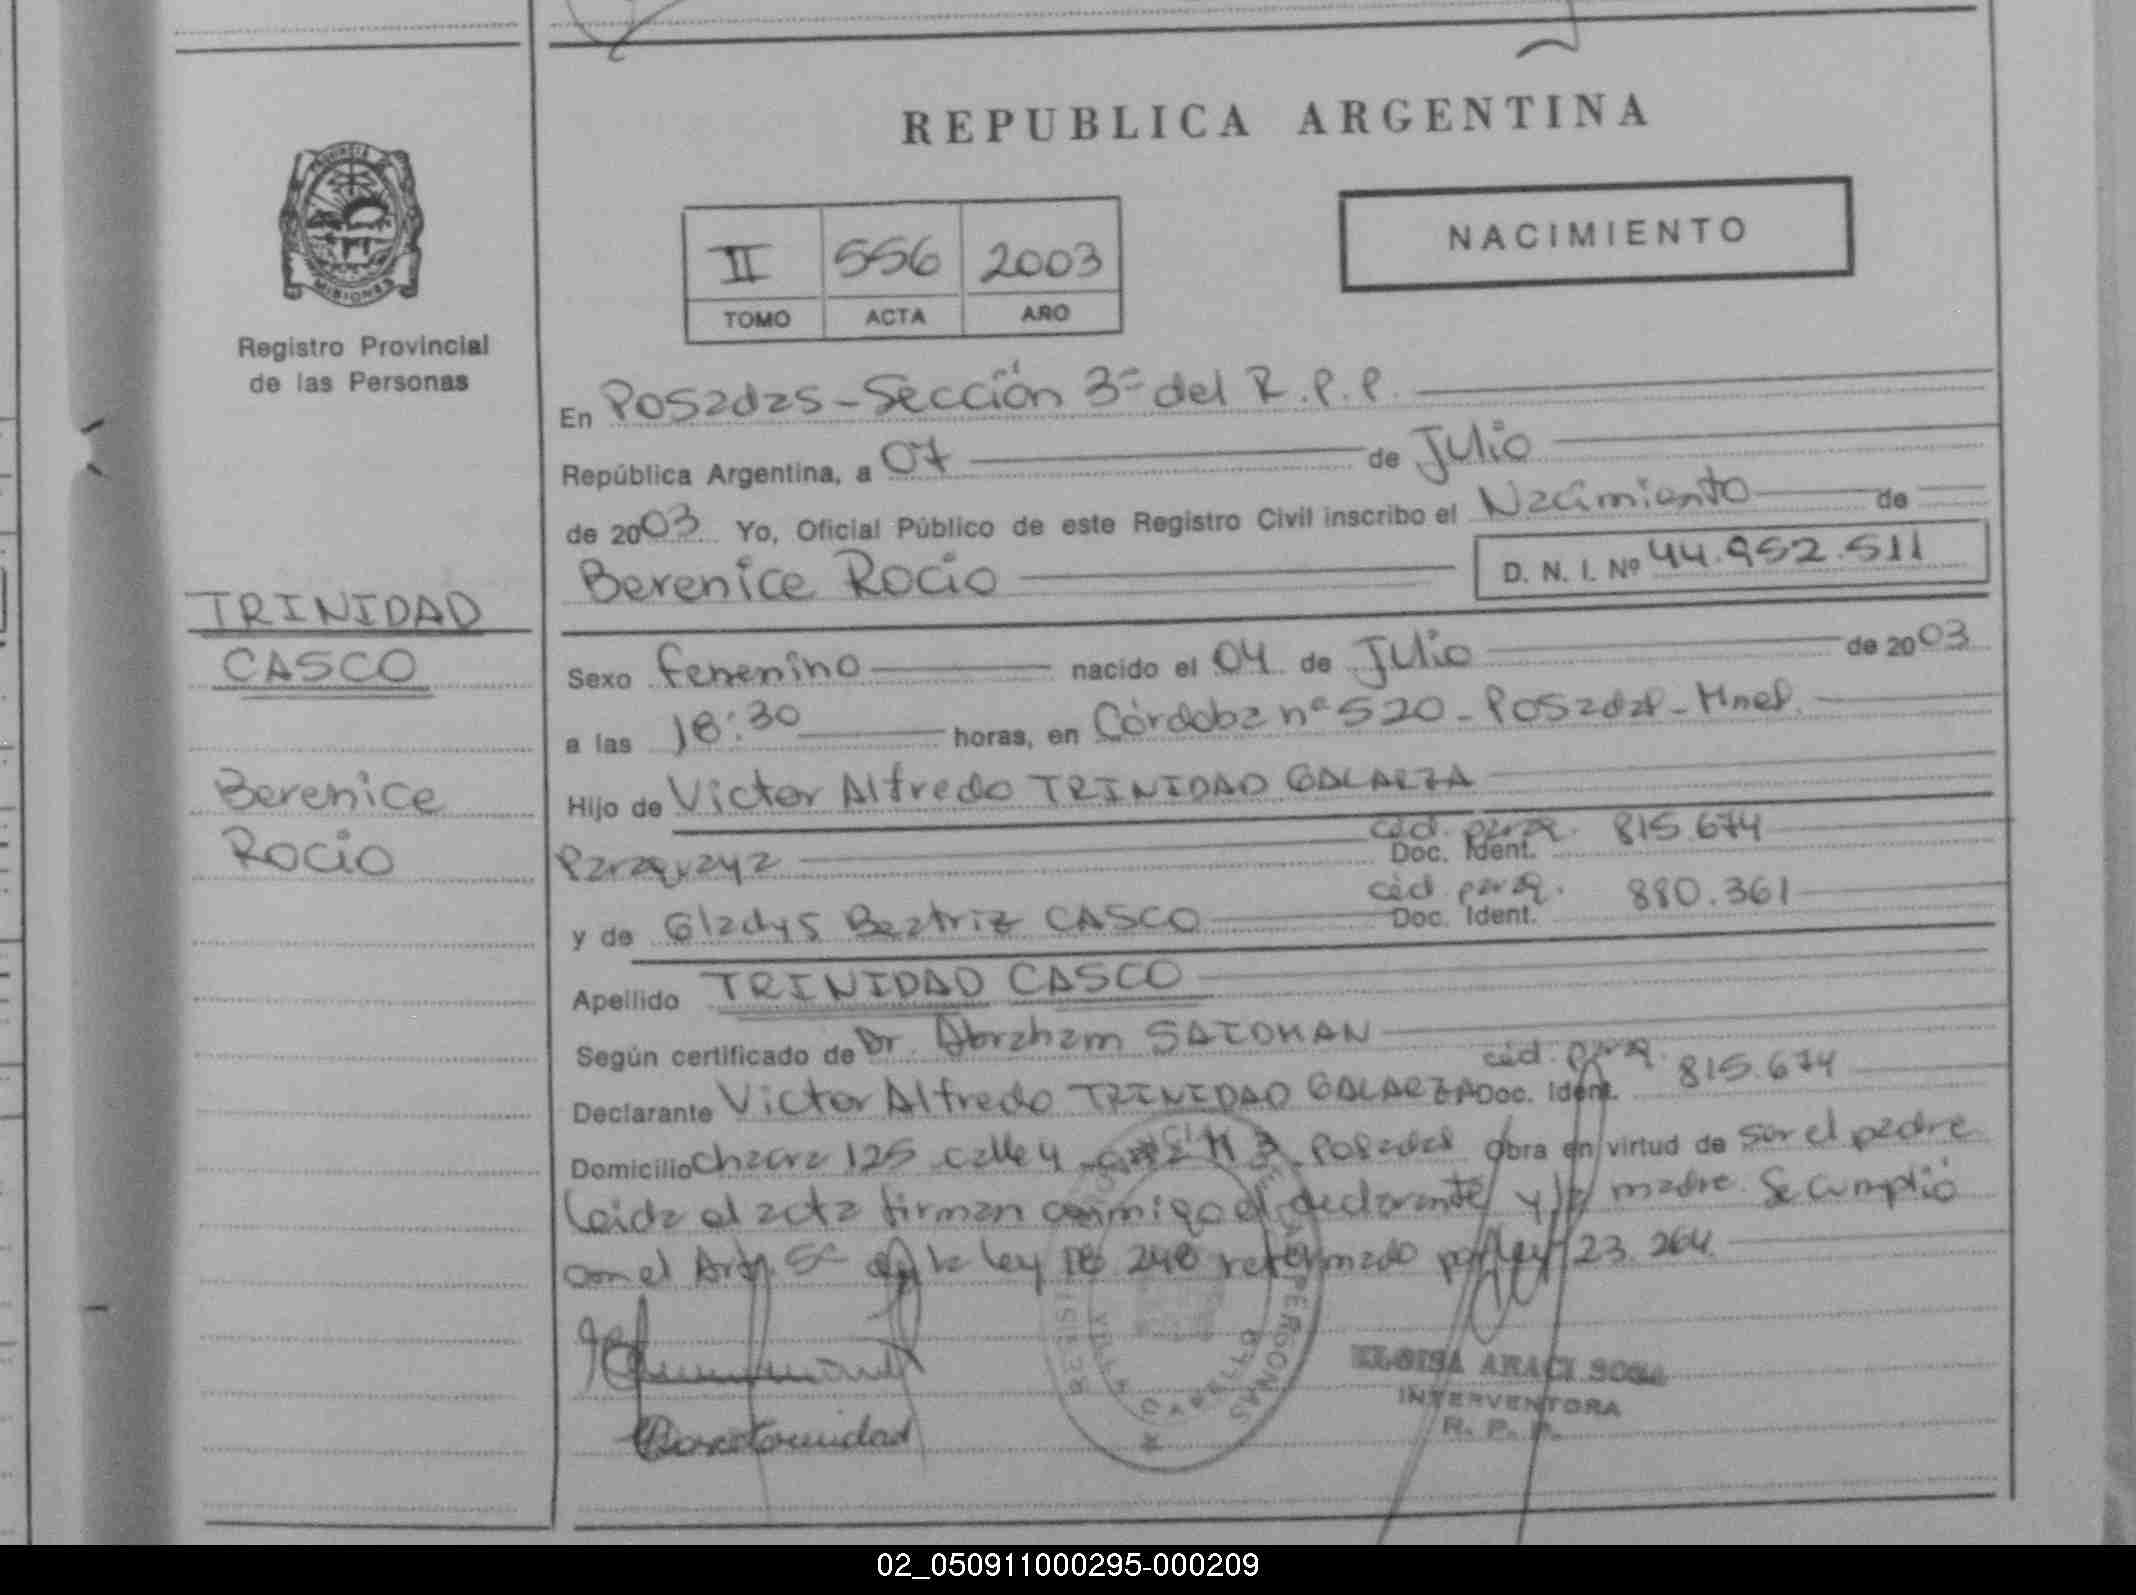 REPUBLICA ARGENTINA
PROVINCIA DE
MISIONES
Registro Provincial
de las Personas
II 556 2003
TOMO ACTA AÑO
NACIMIENTO
En Posadas - Sección 3ª del R.P.P.
República Argentina, a 07 de Julio
de 2003 Yo, Oficial Público de este Registro Civil inscribo el Nacimiento de
Berenice Rocio D. N. I. Nº 44.952.511
TRINIDAD
CASCO
Berenice
Rocio
Sexo femenino nacido el 04 de Julio de 2003
a las 18:30 horas, en Córdoba nº 520 - Posadas - Mnes.
Hijo de Victor Alfredo TRINIDAD GALARZA
céd. parag. 815.674
Paraguaya Doc. Ident.
céd. parag. 880.361
y de Gladys Beatriz CASCO Doc. Ident.
Apellido TRINIDAD CASCO
Según certificado de Dr. Abraham
céd. parag. 815.674
Declarante Victor Alfredo TRINIDAD GALARZA Doc. Ident.
Domicilio chacra 125 calle 4 Posadas obra en virtud de ser el padre
Leida el acta firman conmigo el declarante y la madre. Se cumplió
con el Art. 5º de la ley 18.248 reformado por ley 23.264.
ELOISA ARACI SOSA
INTERVENTORA
R. P. P.
02_050911000295-000209